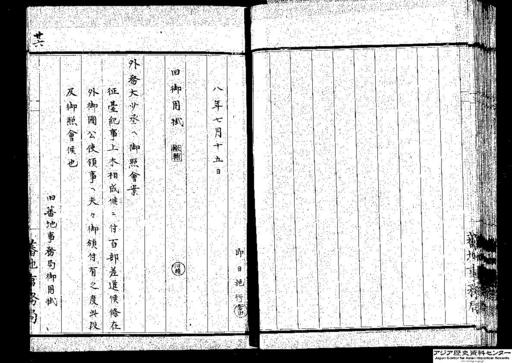 八年七月十五日
即日施行
旧御用掛
外務大少丞へ御照会案
征蛮紀事上木相成候ニ付百部差進候條在
外御国公使領事へ夫々御頒付有之度此段
及御照會候也
旧蕃地事務局御用掛
蕃地事務局
廿六
アジア歴史資料センター
Japan Center for Asian Historical Records